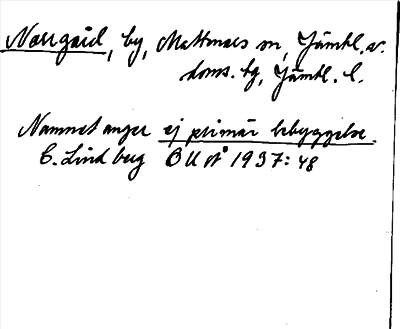 Norrgård, by, Mattmars sn, Jämtl. v.
doms. tg, Jämtl. l.
Namnet anger ej primär bebyggelse.
C. Lindberg BUA 1937: 48